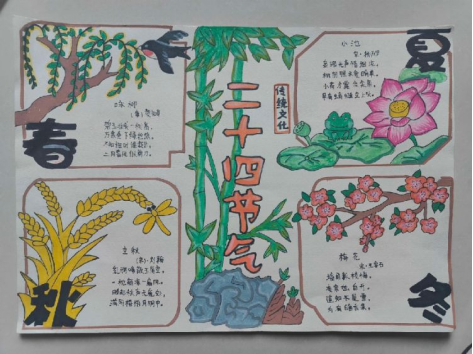 春
咏柳
碧玉妆成一树高,
万条垂下绿丝绦。
不知细叶谁裁出,
二月春风似剪刀。
二十四节气
传统文化
夏
小池
泉眼无声惜细流,
树阴照水爱晴柔。
小荷才露尖尖角,
早有蜻蜓立上头。
秋
立秋
(宋)刘翰
乳鸦啼散玉屏空,
一枕新凉一扇风。
睡起秋声无觅处,
满阶梧桐月明中。
冬
梅花
宋·王安石
墙角数枝梅,
凌寒独自开。
遥知不是雪,
为有暗香来。